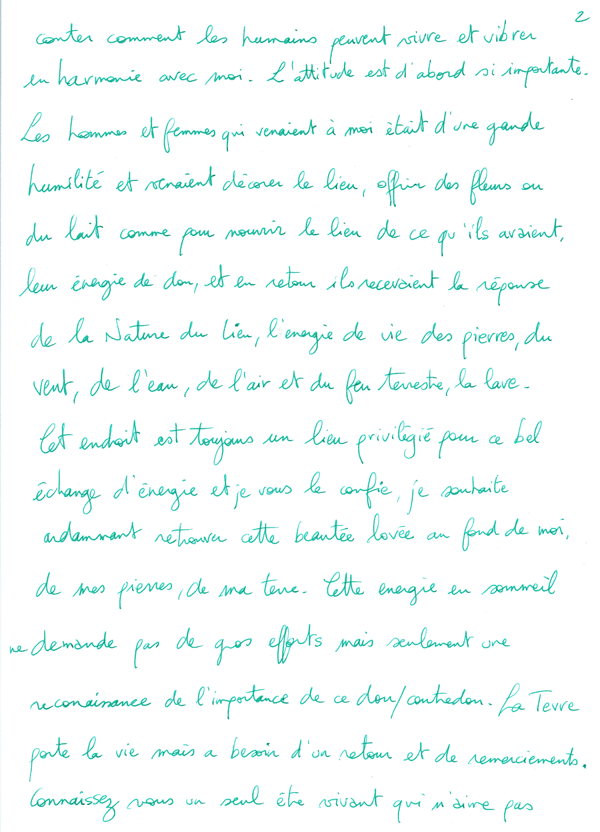 2
conter comment les humains peuvent vivre et vibrer
en harmonie avec moi. L'attitude est d'abord si importante.
Les hommes et femmes qui venaient à moi était d'une grande
humilité et venaient décorer le lieu, offrir des fleurs ou
du lait comme pour nourrir le lieu de ce qu'ils avaient,
leur énergie de don, et en retour ils recevaient la réponse
de la Nature du Lieu, l'energie de vie des pierres, du
vent, de l'eau, de l'air et du feu terrestre, la lave.
Cet endroit est toujours un lieu privilégié pour ce bel
échange d'énergie et je vous le confie, je souhaite
ardammant retrouver cette beautée lovée au fond de moi,
de mes pierres, de ma terre. Cette energie en sommeil
ne demande pas de gros efforts mais seulement une
reconaissance de l'importance de ce don/contredon. La Terre
porte la vie mais a besoin d'un retour et de remerciements.
Connaissez vous un seul être vivant qui n'aime pas